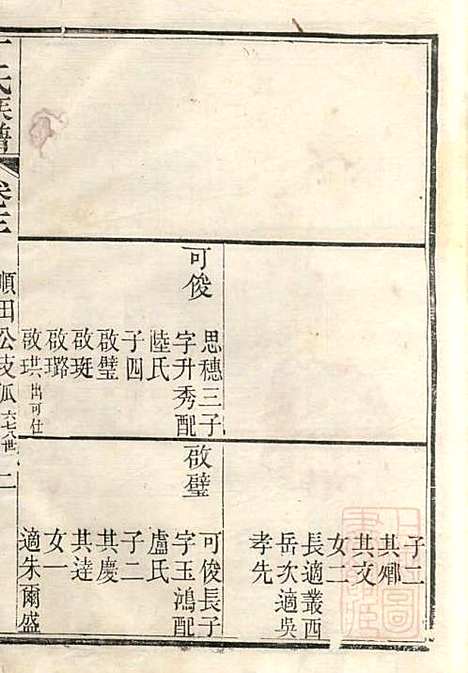 可俊
思穗三子
字升秀配
陸氏
子四
啟璧
啟珽
啟璐
啟珙出可仕
子二
其鄉
其文
女二
長適叢西
岳次適吳
孝先
啟璧
可俊長子
字玉鴻配
盧氏
子二
其慶
其達
女一
適朱爾盛
氏族譜
順田公支派六七八世
二